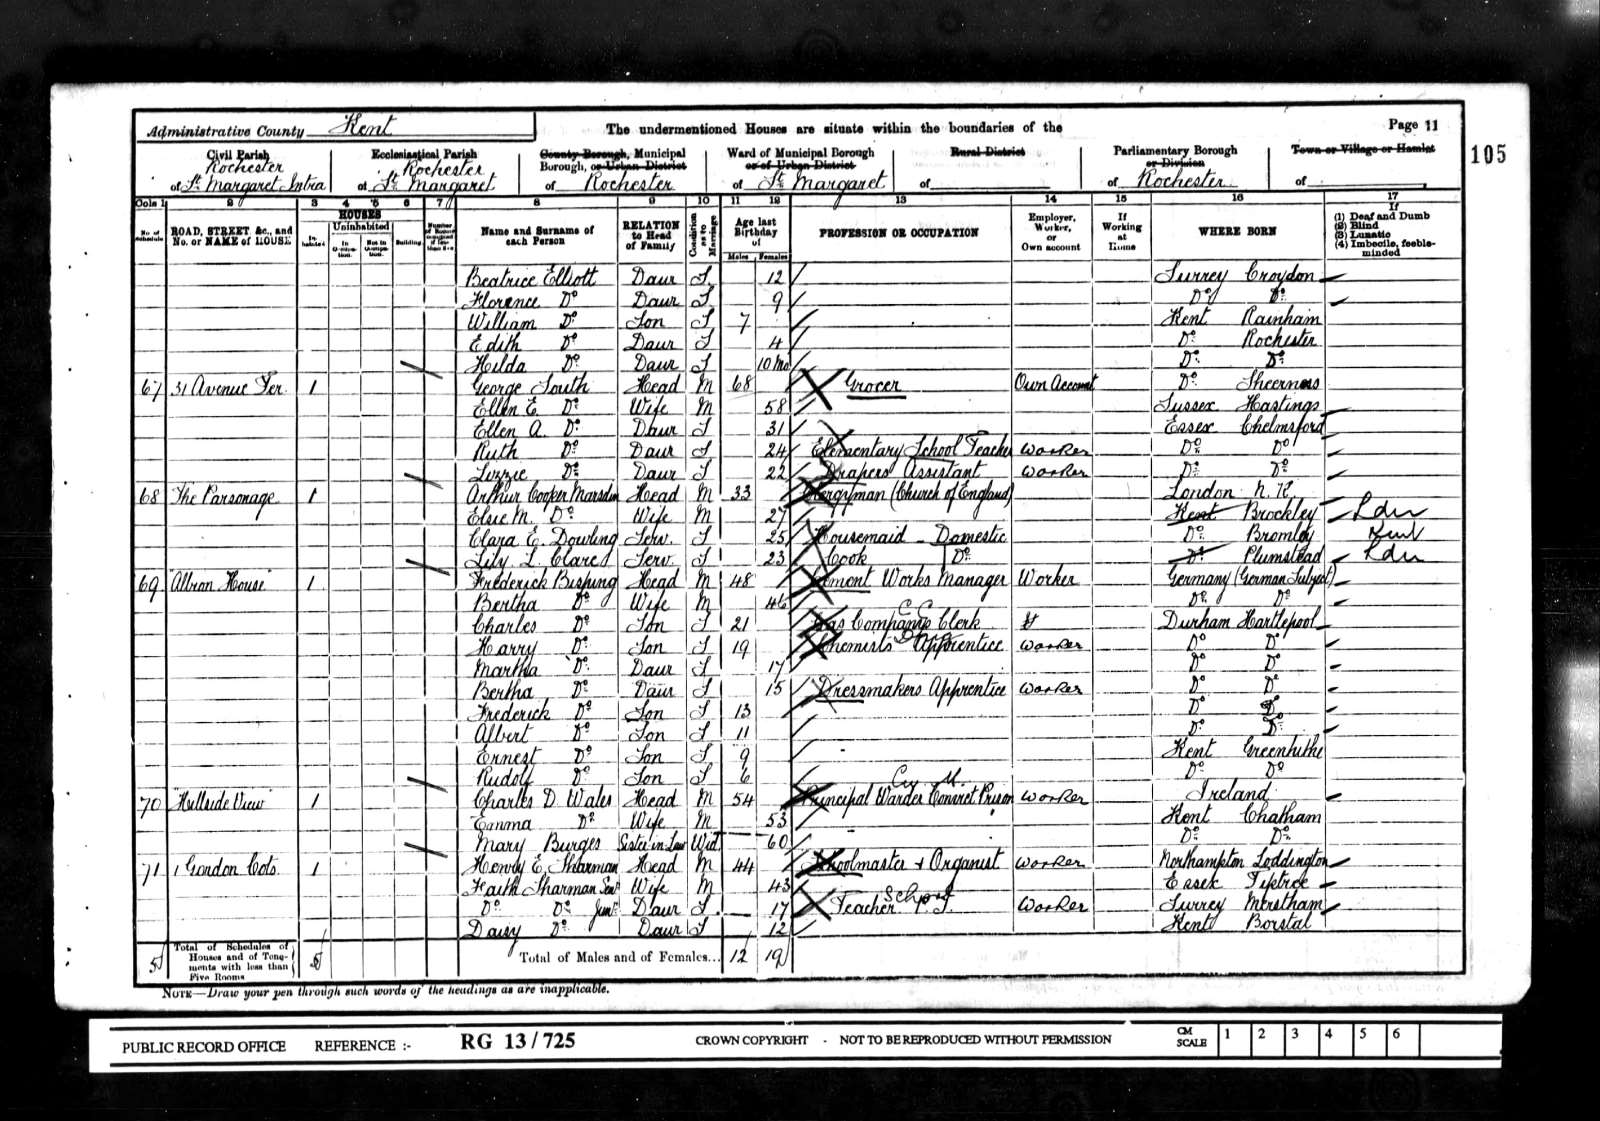 Administrative County Kent
The undermentioned Houses are situate within the boundaries of the
Page 11
105
Civil Parish
Rochester
of St. Margaret Intra
Ecclesiastical Parish
Rochester
of St. Margaret
County Borough, Municipal
Borough, or Urban District
of Rochester
Ward of Municipal Borough
or of Urban District
of St. Margaret
Rural District
of
Parliamentary Borough
or Division
of Rochester
Town or Village or Hamlet
of
Cols 1 2 3 4 5 6 7 8 9 10 11 12 13 14 15 16 17
No. of Schedule
ROAD, STREET, &c., and No. or NAME of HOUSE
HOUSES
In-habited
Uninhabited
In Occupation.
Not in Occupation.
Building.
Number of Rooms occupied if less than five
Name and Surname of each Person
RELATION to Head of Family
Condition as to Marriage
Age last Birthday of
Males Females
PROFESSION OR OCCUPATION
Employer, Worker, or Own account
If Working at Home
WHERE BORN
If
(1) Deaf and Dumb
(2) Blind
(3) Lunatic
(4) Imbecile, feeble-minded
Beatrice Elliott Daur S 12 Surrey Croydon
Florence Do Daur S 9 Do Do
William Do Son S 7 Kent Rainham
Edith Do Daur S 4 Do Rochester
Hilda Do Daur S 10 Mo Do Do
67 31 Avenue Ter. 1 George South Head M 68 Grocer Own Account Do Sheerness
Ellen E. Do Wife M 58 Sussex Hastings
Ellen A. Do Daur S 31 Essex Chelmsford
Ruth Do Daur S 24 Elementary School Teacher Worker Do Do
Lizzie Do Daur S 22 Drapers Assistant Worker Do Do
68 The Parsonage 1 Arthur Cooper Marsden Head M 33 Clergyman (Church of England) London N.K.
Elsie M. Do Wife M 27 Kent Brockley Ldn
Clara E. Dowling Serv. S 25 Housemaid - Domestic Do Bromley Kent
Lily L. Clare Serv S 23 Cook Do Do Plumstead Ldn
69 "Albion House" 1 Frederick Bishing Head M 48 Cement Works Manager Worker Germany (German Subject)
Bertha Do Wife M 46 Do Do
Charles Do Son S 21 Gas Companys Clerk Do Durham Hartlepool
Harry Do Son S 19 Chemists Apprentice Worker Do Do
Martha Do Daur S 17 Do Do
Bertha Do Daur S 15 Dressmakers Apprentice Worker Do Do
Frederick Do Son S 13 Do Do
Albert Do Son S 11 Do Do
Ernest Do Son S 9 Kent Greenhithe
Rudolf Do Son S 6 Do Do
70 "Hillside View" 1 Charles D. Wales Head M 54 Principal Warder Convict Prison Worker Ireland
Emma Do Wife M 53 Kent Chatham
Mary Burges Sister in Law Wid. 60 Do Do
71 1 Gordon Cots. 1 Henry E. Sharman Head M 44 Schoolmaster & Organist Worker Northampton Loddington
Faith Sharman Senr Wife M 43 Essex Tiptree
Do Do Junr Daur S 17 Teacher School Worker Surrey Merstham
Daisy Do Daur S 12 Kent Borstal
5 Total of Schedules of Houses and of Tenements with less than Five Rooms 5
Total of Males and of Females... 12 19
NOTE—Draw your pen through such words of the headings as are inapplicable.
PUBLIC RECORD OFFICE REFERENCE :- RG 13/725 CROWN COPYRIGHT - NOT TO BE REPRODUCED WITHOUT PERMISSION CM SCALE 1 2 3 4 5 6